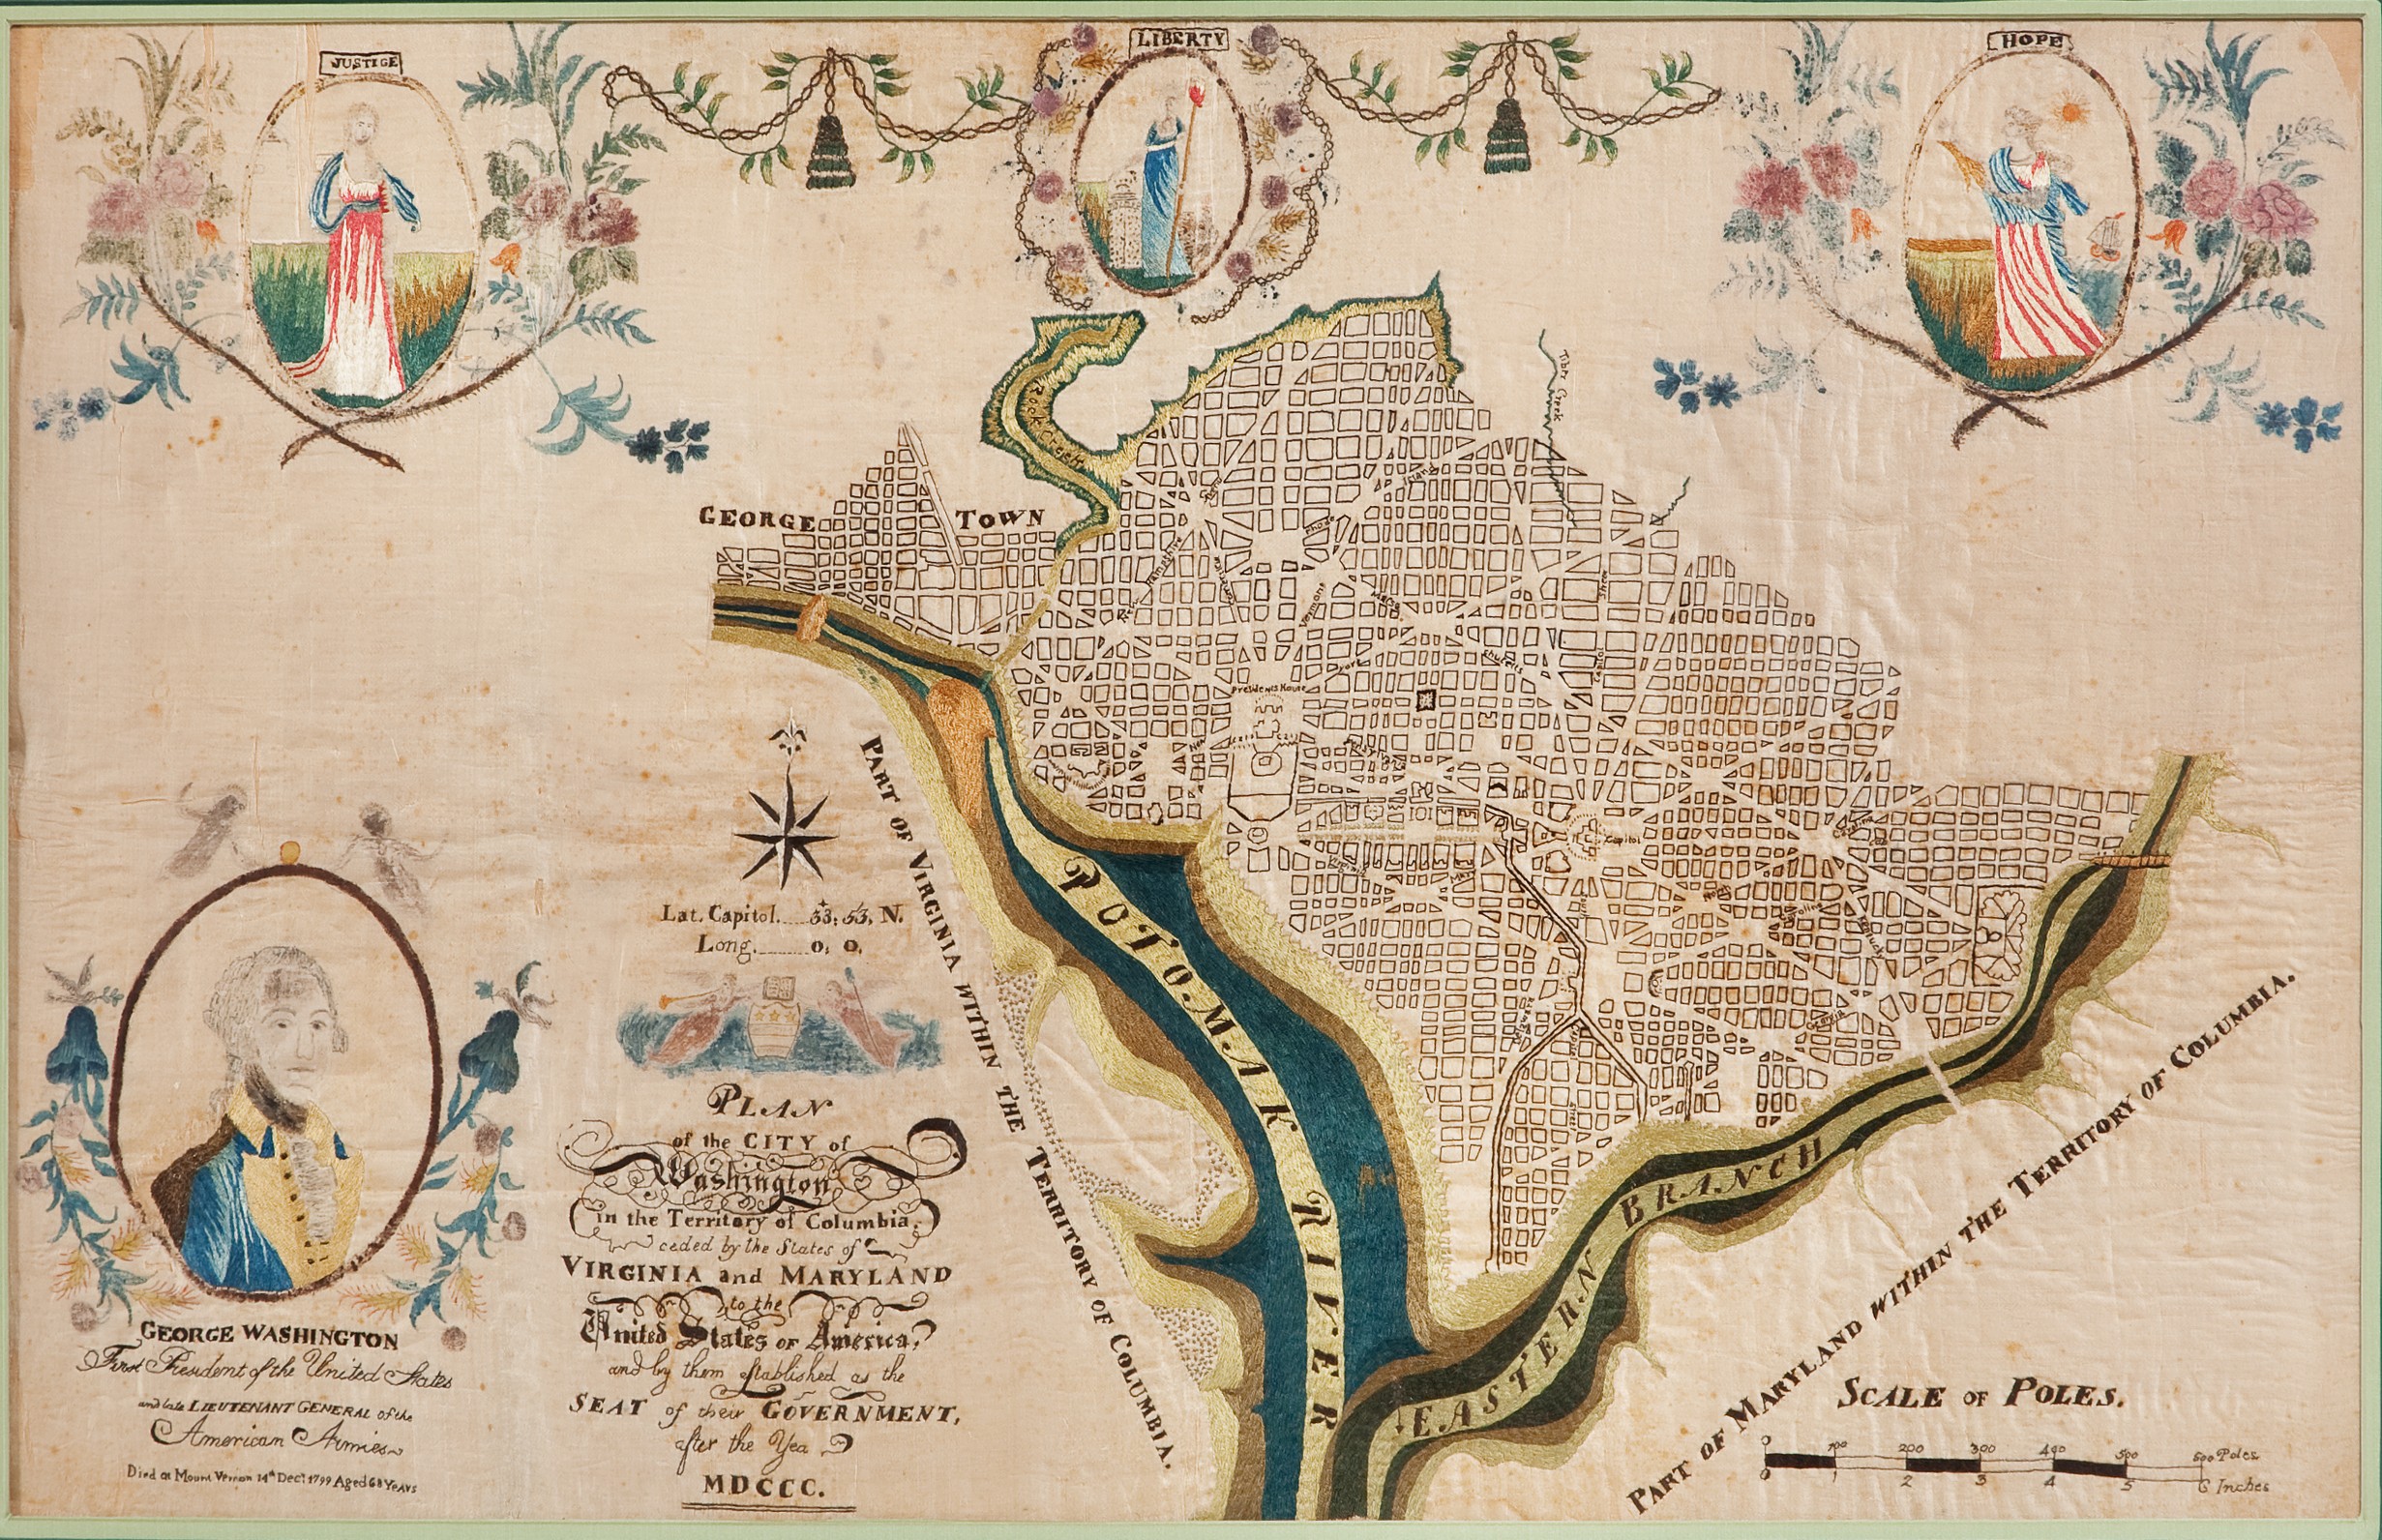 JUSTICE
LIBERTY
HOPE
Rock Creek
Tiber Creek
GEORGE TOWN
Presidents House
Capitol
POTOMAK RIVER
EASTERN BRANCH
PART OF VIRGINIA WITHIN THE TERRITORY OF COLUMBIA.
PART OF MARYLAND WITHIN THE TERRITORY OF COLUMBIA.
Lat. Capitol....53; 53, N.
Long.......0; 0,
PLAN
of the CITY of
Washington
in the Territory of Columbia,
ceded by the States of
VIRGINIA and MARYLAND
to the
United States OF America,
and by them established as the
SEAT of their GOVERNMENT,
after the Yea
MDCCC.
GEORGE WASHINGTON
First President of the United States
and late LIEUTENANT GENERAL of the
American Armies
Died at Mount Vernon 14th Decr 1799 Aged 68 Years
SCALE OF POLES.
0 100 200 300 400 500 600 Poles
0 1 2 3 4 5 6 Inches